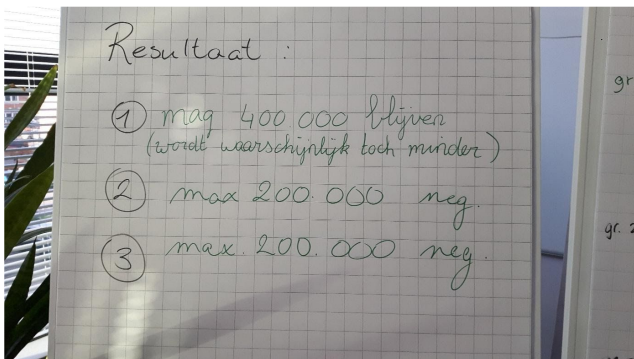 Resultaat :
① mag 400 000 blijven
(wordt waarschijnlijk toch minder)
② max 200.000 neg.
③ max. 200.000 neg.
gr
gr. 2